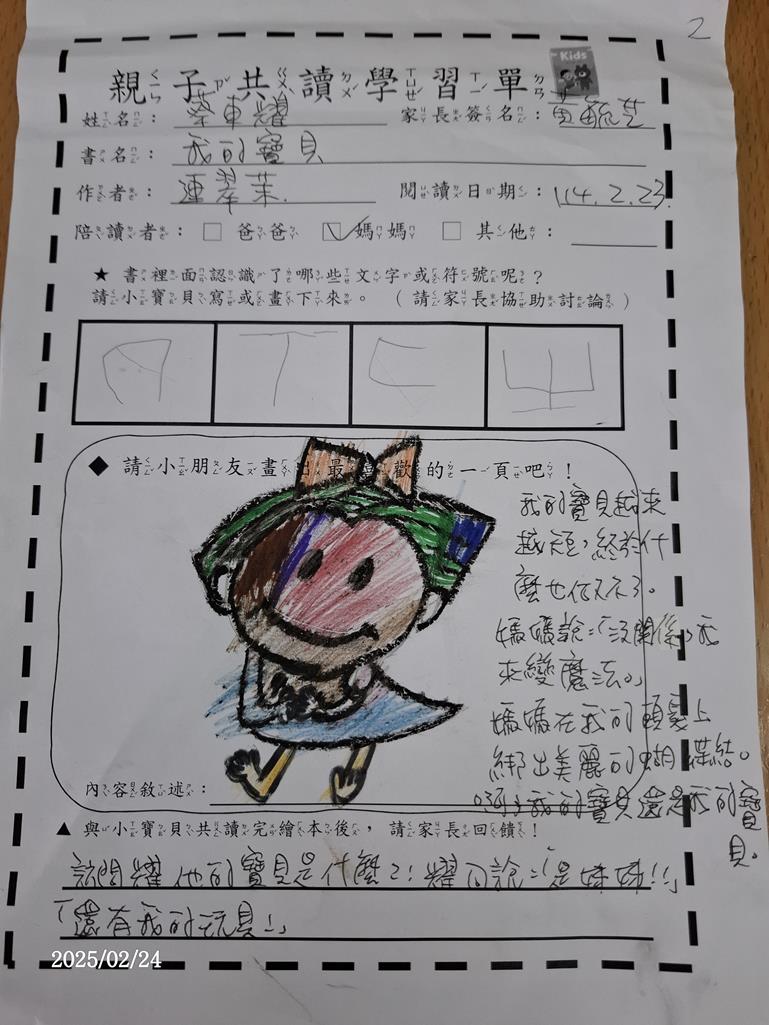 2
Kids
親子共讀學習單
姓名：蔡東耀 家長簽名：黃毓芝
書名：我的寶貝
作者：連翠茉 閱讀日期：114.2.23.
陪讀者：□ 爸爸 ☑ 媽媽 □ 其他：
★ 書裡面認識了哪些文字或符號呢？
請小寶貝寫或畫下來。（請家長協助討論）
ㄓ
◆ 請小朋友畫出最喜歡的一頁吧！
我的寶貝越來
越短，終於什
麼也做不了。
媽媽說：「沒關係，我
來變魔法。」
媽媽在我的頭髮上
綁出美麗的蝴蝶結。
我的寶貝還是我的寶
貝。
內容敘述：
▲ 與小寶貝共讀完繪本後，請家長回饋！
訪問耀他的寶貝是什麼？！耀回說：「是妹妹!!」
「還有我的玩具!」
2025/02/24